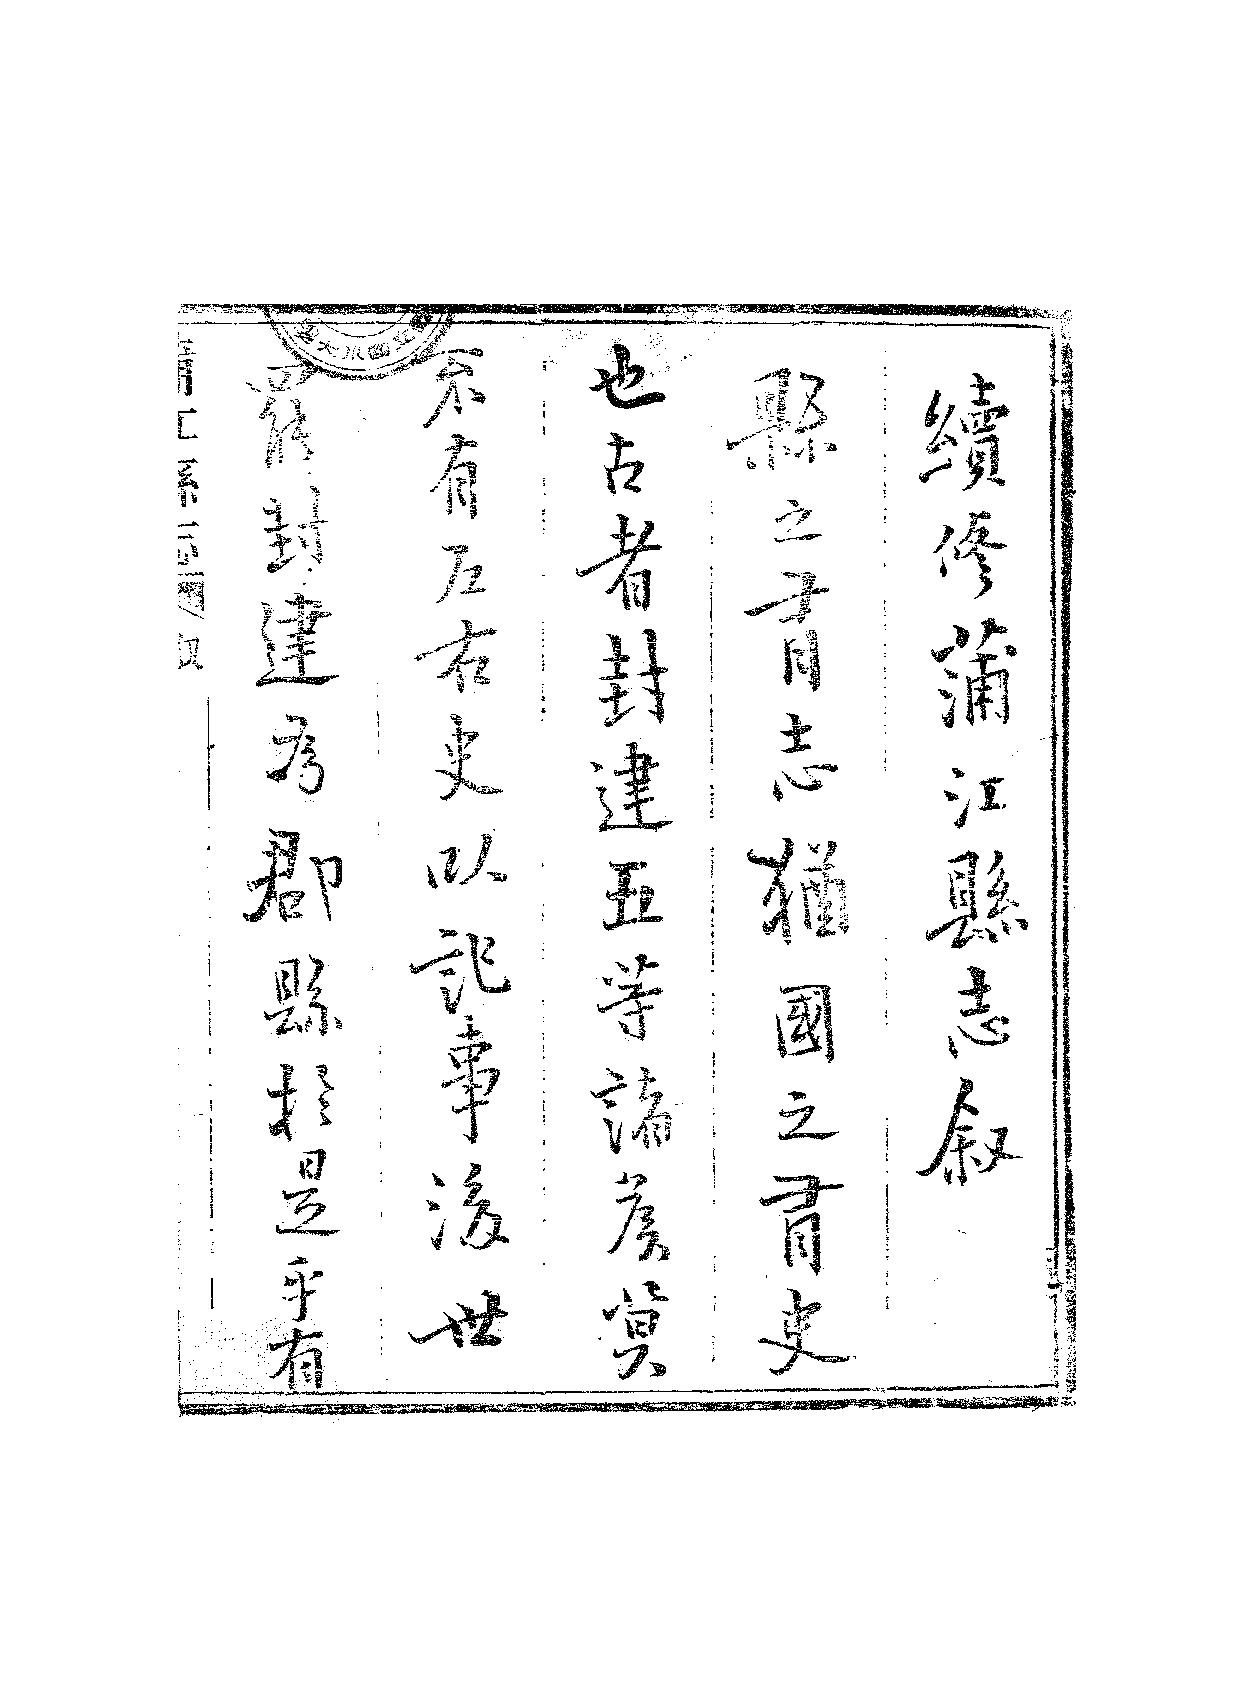 續修蒲江縣志敘
縣之有志猶國之有史
也古者封建五等諸矦莫
不有左右史以記事後世
罷封建為郡縣於是乎有
蒲江縣志 敘